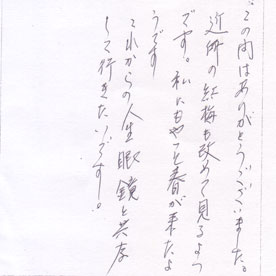 この内はありがとうございました。
近所の紅梅も改めて見るよう
です。私にもやっと春が来たよ
うです
これからの人生眼鏡と共存
して行きたいです!